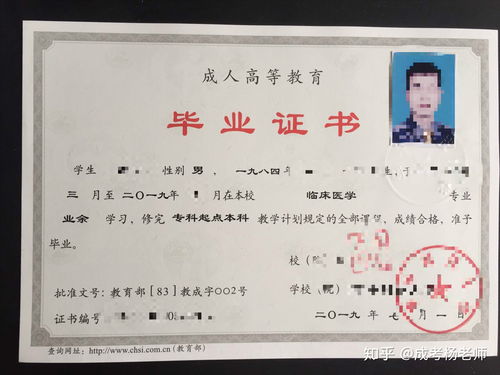 成人高等教育
毕业证书
学生 性别 男， 一九八四年 生，于
三 月至 二〇一九年 月在本校 临床医学 专业
业余 学习，修完 专科起点本科 教学计划规定的全部课程，成绩合格，准予
毕业。
校（
批准文号：教育部［83］教成字002号 学校（院）
证书编号 二〇一九年 七 月 一 日
查询网址：http://www.chsi.com.cn（教育部）
知乎 @成考杨老师